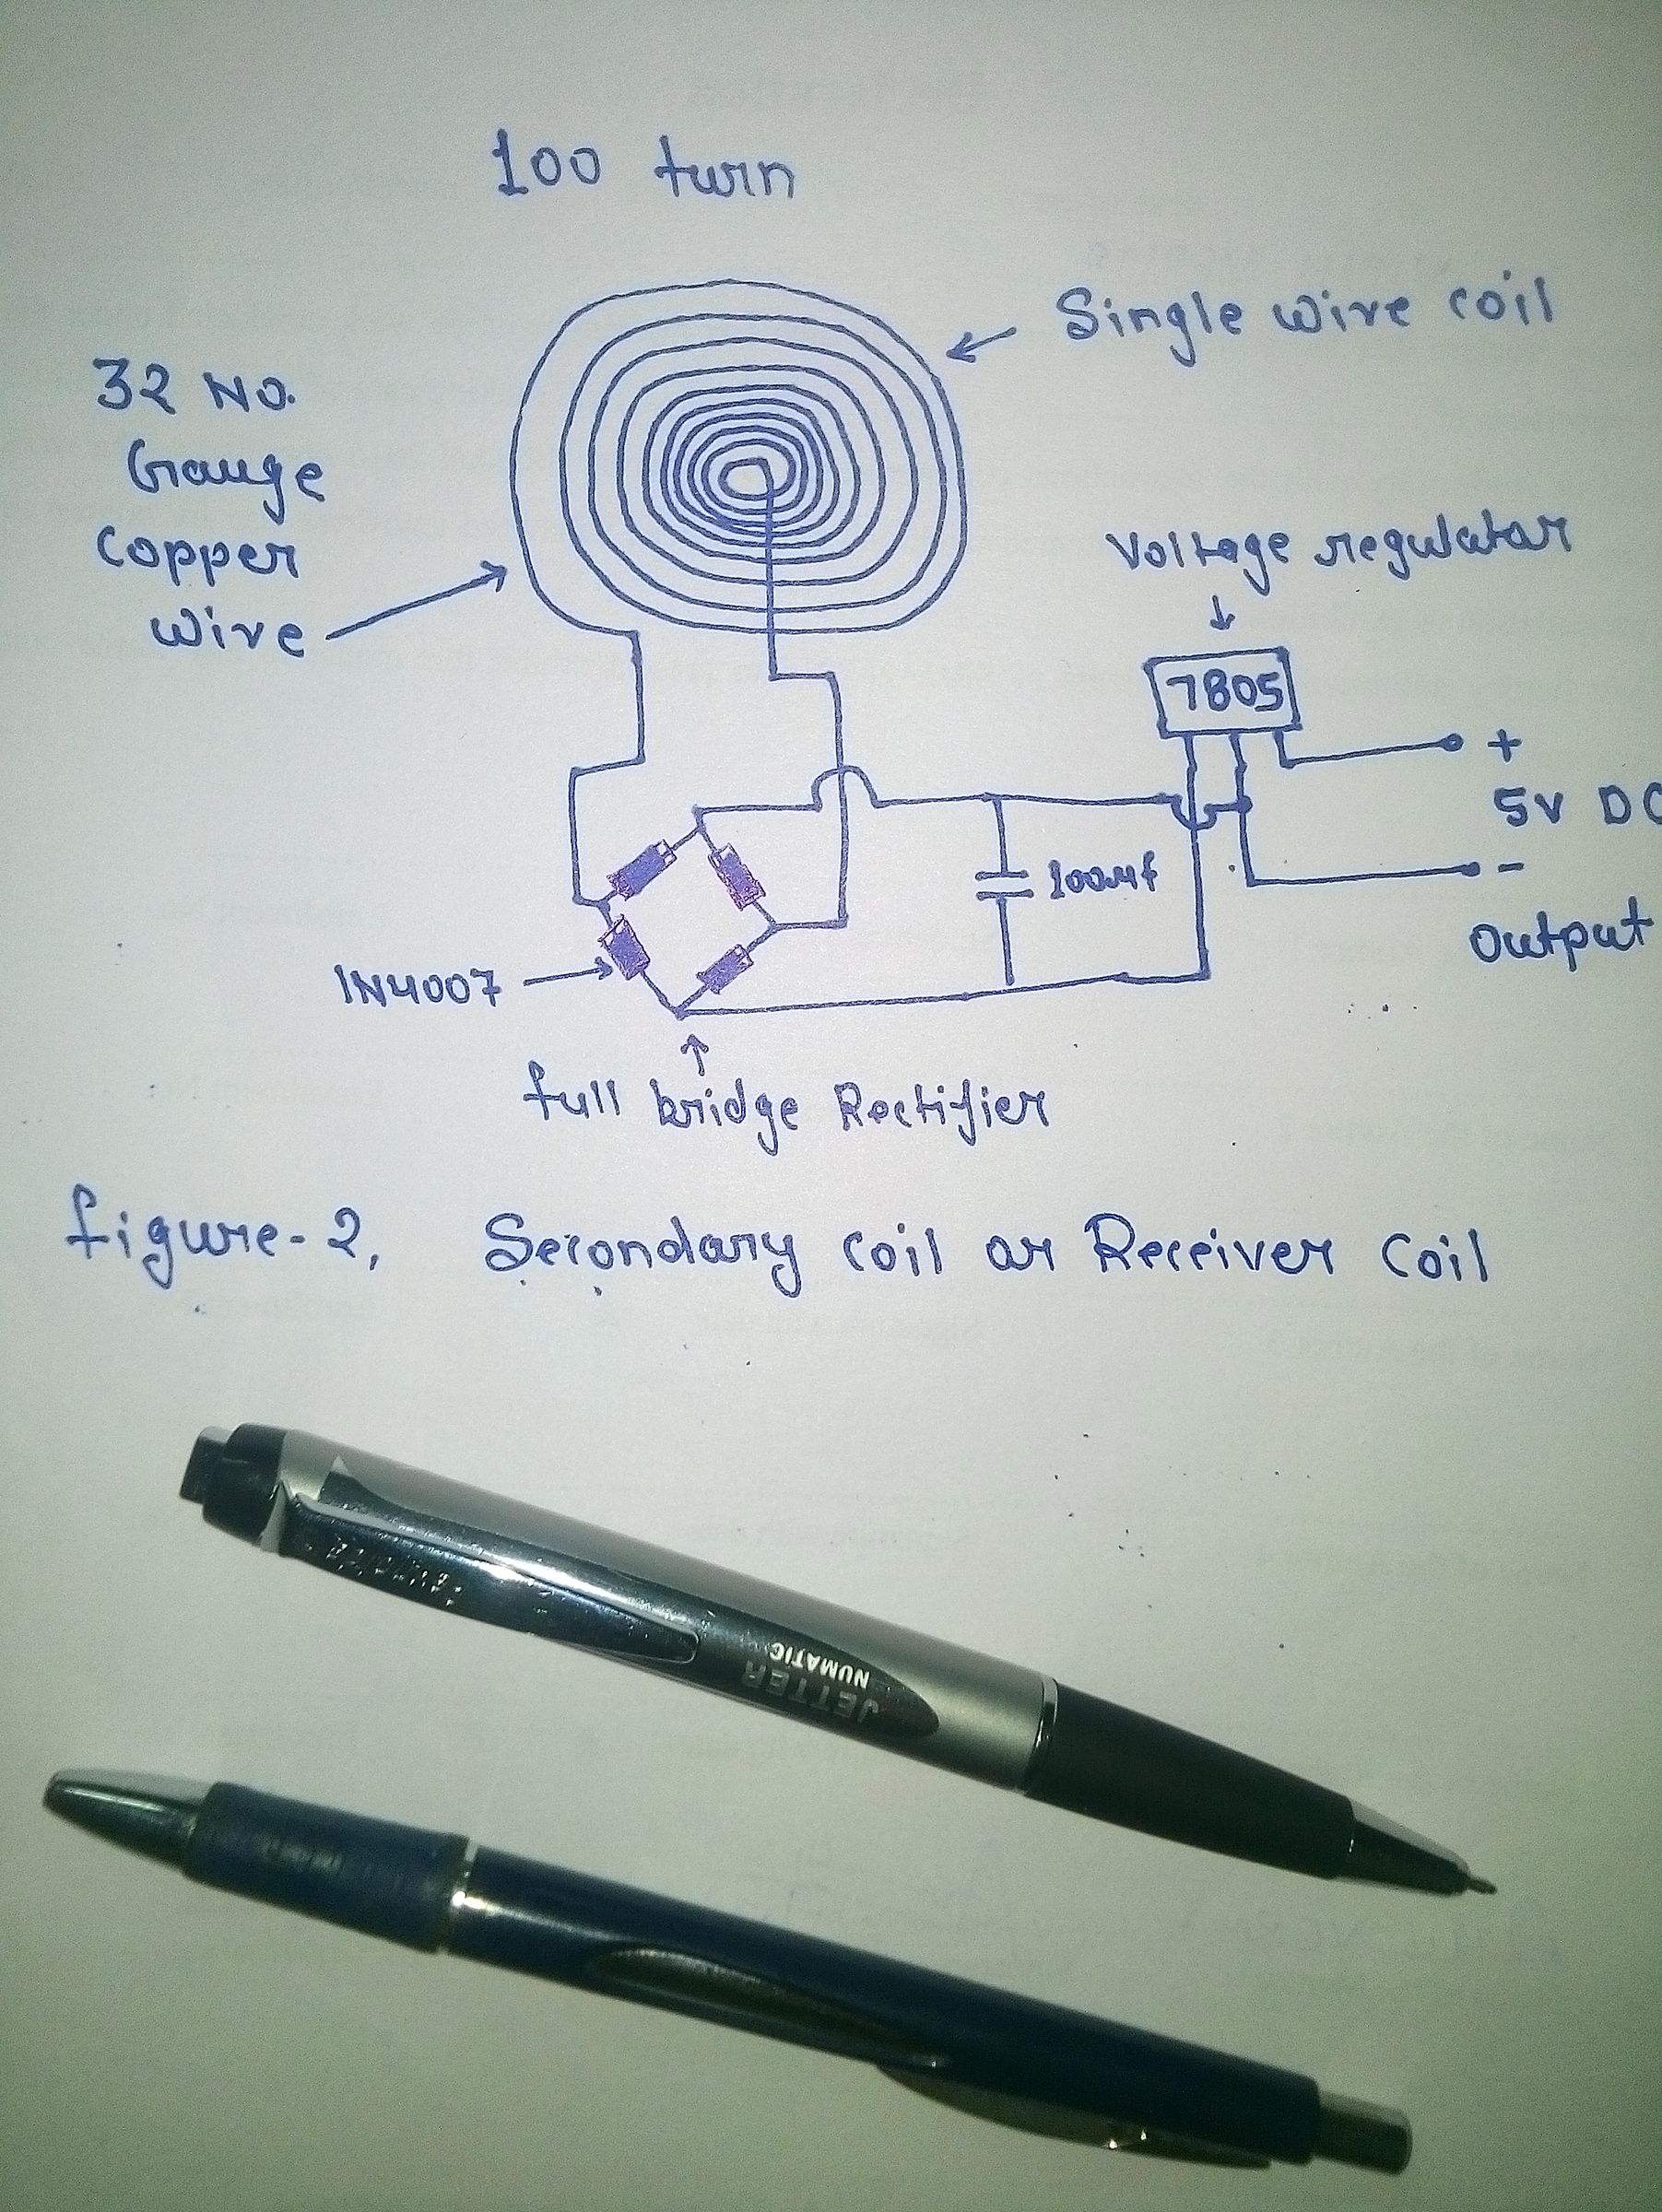 100 turn
Single wire coil
32 No.
Gauge
copper
wire
Voltage regulator
7805
+
5V DC
-
Output
100µf
1N4007
full bridge Rectifier
figure-2, Secondary coil or Receiver coil
JETTER
NUMATIC